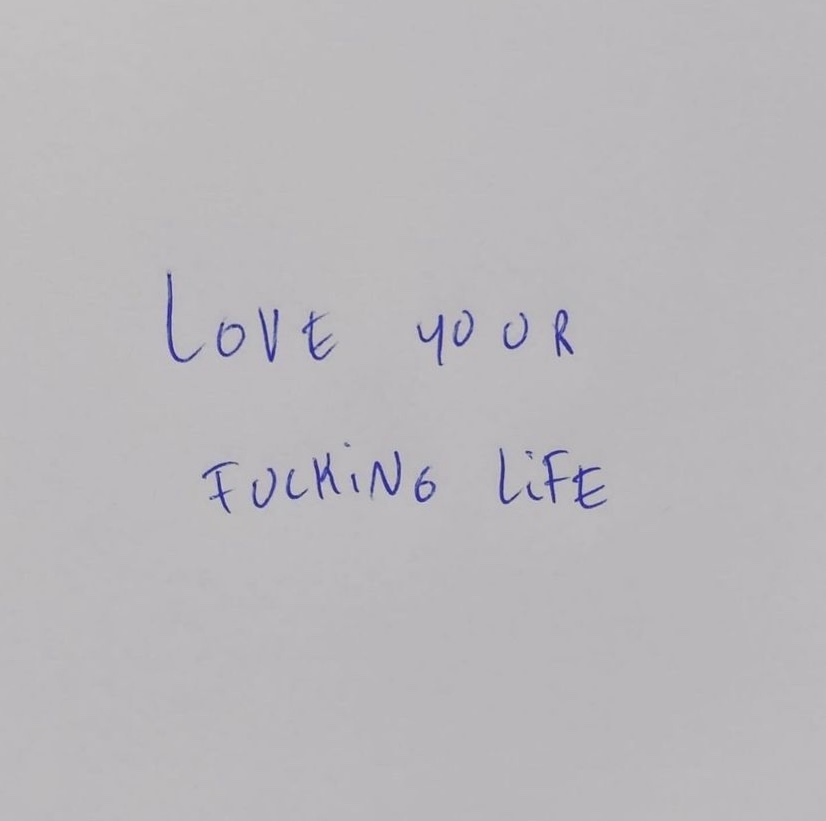 LOVE YOUR
FUCKiNG LiFE